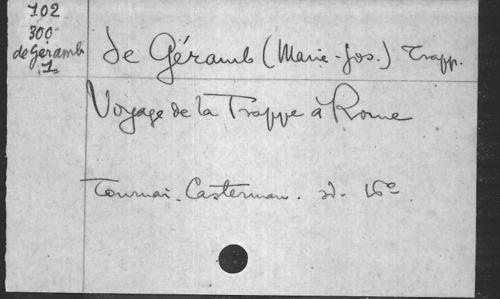 702
300
de Géramb
1
de Géramb (Marie-Jos.) Trapp.
Voyage de la Trappe à Rome
Tournai. Casterman. sd. 16°